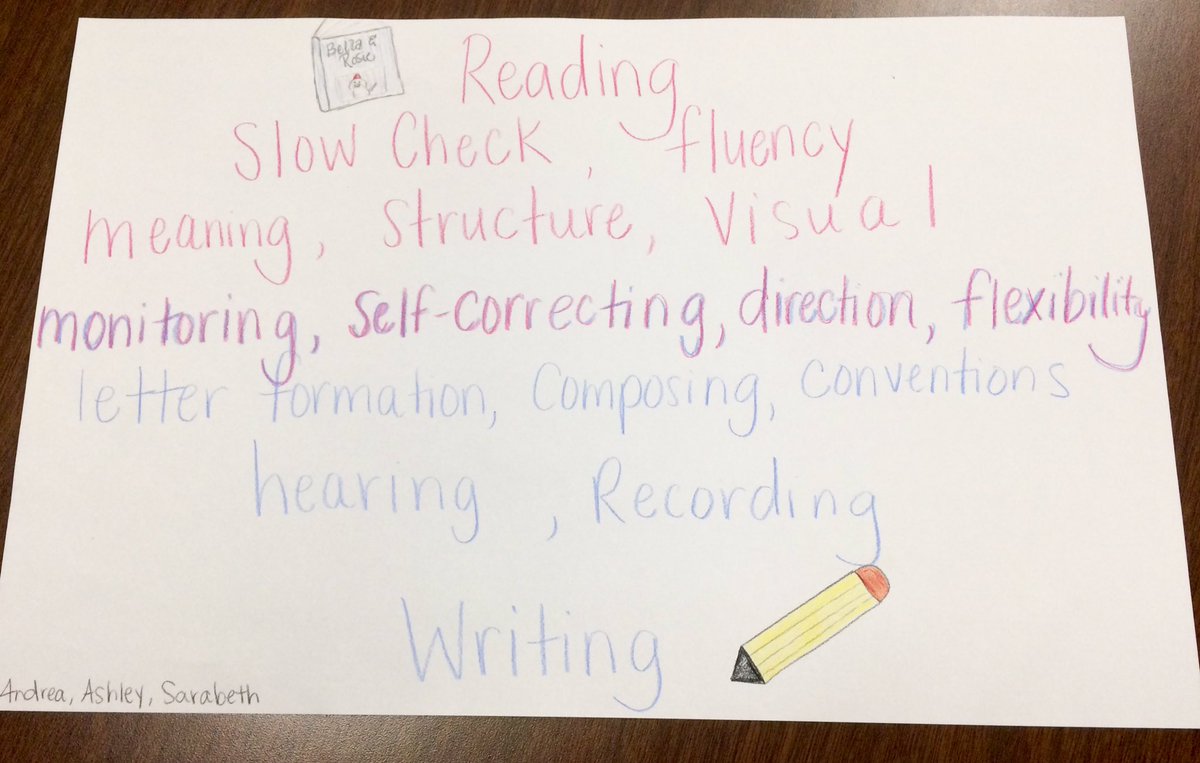 Bella &
Rosie
Reading
Slow Check, fluency
meaning, structure, visual
monitoring, self-correcting, direction, flexibility
letter formation, composing, conventions
hearing, Recording
Writing
Andrea, Ashley, Sarabeth